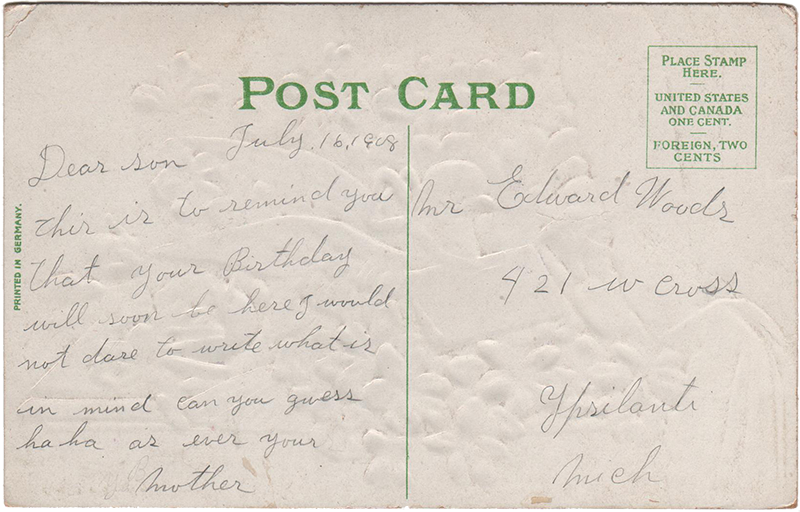 POST CARD
PLACE STAMP
HERE.
UNITED STATES
AND CANADA
ONE CENT.
FOREIGN, TWO
CENTS
PRINTED IN GERMANY.
July, 16, 1908
Dear son
this is to remind you
that your Birthday
will soon be here I would
not dare to write what is
in mind can you guess
ha ha as ever your
Mother
Mr Edward Woods
421 W Cross
Ypsilanti
Mich